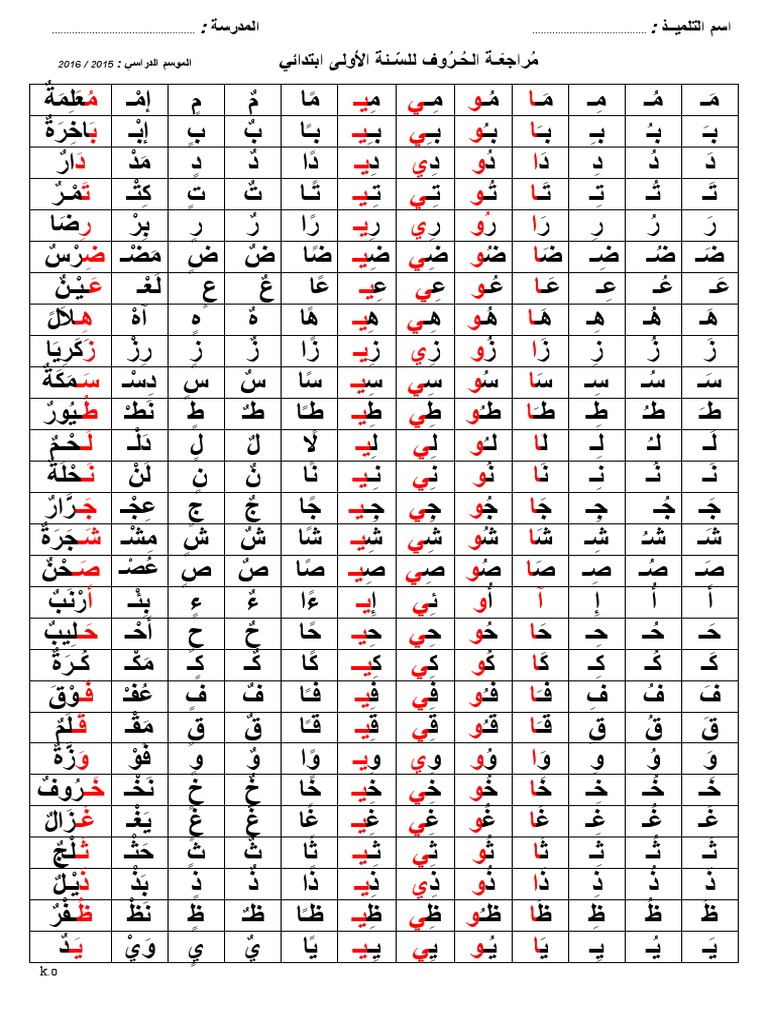 اسم التلميــذ : ........................................ المدرسة : ........................................
مُراجَعَـة الـحُـرُوف للسّـنة الأولى ابتدائي الموسم الدراسي : 2015 / 2016
مَـ مُـ مِـ مَـا مُـو مِـي مِيـ مًا مٌ مٍ إمْـ مُـعَلِمَةٌ
بـَ بـُ بـِ بـَا بـُو بـِي بـِيـ بـًا بٌ بٍ إبْـ بَـاخِرَةٌ
دَ دُ دِ دَا دُو دِي دِيـ دًا دٌ دٍ مَدْ دَارٌ
تَـ تُـ تِـ تَـا تُـو تِـي تِـيـ تًـا تٌ تٍ كِتْـ تَـمْـرٌ
رَ رُ رِ رَا رُو رِي رِيـ رًا رٌ رٍ بِرْ رِضَا
ضَـ ضُـ ضِـ ضَا ضُو ضِي ضِيـ ضًا ضٌ ضٍ مَضْـ ضِـرْسٌ
عَـ عُـ عِـ عَـا عُـو عِي عِيـ عًا عٌ عٍ لَعْـ عَـيْـنٌ
هَـ هُـ هِـ هَـا هُـو هِـي هِيـ هًا هٌ هٍ آهْ هِـلاَلٌ
زَ زُ زِ زَا زُو زِي زِيـ زًا زٌ زٍ رِزْ زَكَرِيَا
سَـ سُـ سِـ سَا سُو سِي سِيـ سًا سٌ سٍ دِسْـ سَـمَكَةٌ
طَـ طُـ طِـ طَـا طُـو طِي طِيـ طـًا طٌ طٍ نَطْـ طُـيُورٌ
لَـ لُـ لِـ لَا لُـو لِـي لِيـ لًا لٌ لٍ دَلْـ لَـحْـمٌ
نَـ نُـ نِـ نَا نُو نِي نِـيـ نًا نٌ نٍ لَنْ نَـحْلَةٌ
جَـ جُـ جِـ جَا جُو جِي جِيـ جًا جٌ جٍ عِجْـ جَـرَّارٌ
شَـ شُـ شِـ شَا شُو شِي شِيـ شًا شٌ شٍ مِشْـ شَـجَرَةٌ
صَـ صُـ صِـ صَا صُو صِي صِيـ صًا صٌ صٍ عُصْـ صَـحْنٌ
أَ أُ إِ آ أُو ئِي إِيـ ءًا ءٌ ءٍ بِئْـ أَرْنَبٌ
حَـ حُـ حِـ حَا حُو حِي حِيـ حًا حٌ حٍ أَحْـ حَـلِيبٌ
كَـ كُـ كِـ كَا كُو كِي كِيـ كًا كٌ كٍ مَكْـ كُـرَةٌ
فَـ فُـ فِـ فَـا فُـو فِي فِيـ فًـا فٌ فٍ عُفْـ فَـوْقَ
قَـ قُـ قِـ قَـا قُـو قِي قِيـ قًـا قٌ قٍ مَقْـ قَـلَمٌ
وَ وُ وِ وَا وُو وِي وِيـ وًا وٌ وٍ فَوْ وَزَّةٌ
خَـ خُـ خِـ خَا خُو خِي خِيـ خًا خٌ خٍ نَخْـ خَـرُوفٌ
غَـ غُـ غِـ غَا غُو غِي غِيـ غًا غٌ غٍ يَغْـ غَـزَالٌ
ثَـ ثُـ ثِـ ثَا ثُو ثِي ثِـيـ ثًا ثٌ ثٍ حَثْـ ثَـلْجٌ
ذَ ذُ ذِ ذَا ذُو ذِي ذِيـ ذًا ذٌ ذٍ بَذْ ذَيْـلٌ
ظَـ ظُـ ظِـ ظَا ظُـو ظِي ظِيـ ظـًا ظٌ ظٍ نَظْـ ظُـفْرٌ
يَـ يُـ يِـ يَا يُـو يِي يِيـ يًا يٌ يٍ وَيْ يَـدٌ
k.o